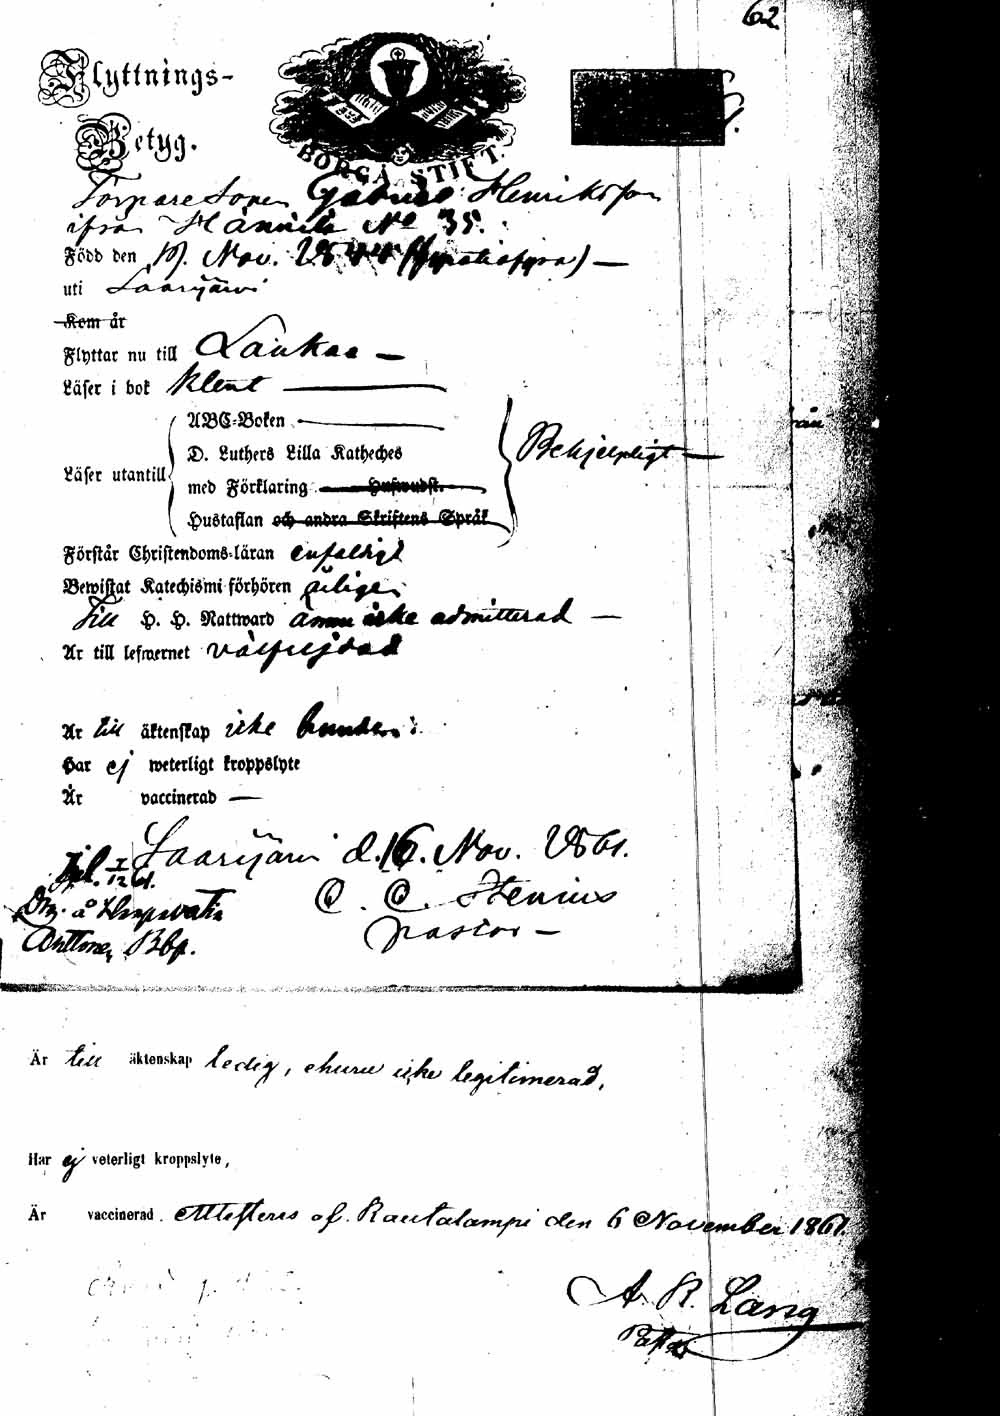 62.
Flyttnings-
Betyg.
BORGÅ STIFT.
Torpare Sonen Gabriel Henriksson
ifrån Hännilä No 35.
Född den Nov. 1844 (fyratiofyra) —
uti Saarijärvi
Kom år
Flyttar nu till Laukaa —
Läser i bok klent —
ABC-Boken —
D. Luthers Lilla Katheches
Läser utantill
med Förklaring Huswudst.
Behjelpligt —
Hustaflan och andra Skriftens Språk
Förstår Christendoms-läran enfaldigt
Bewistat Katechismi förhören årligen
Till H. H. Nattward ännu icke admitterad —
Är till lefwernet välfrejdad
Är till äktenskap icke bunden.
Har ej weterligt kroppslyte
Är vaccinerad —
Saarijärvi d. 16. Nov. 1861.
C. C. Stenius
pastor —
Är till äktenskap ledig, churu icke legitimerad,
Har ej veterligt kroppslyte,
Är vaccinerad. Attesteras af. Rautalampi den 6 November 1861.
A. R. Lang